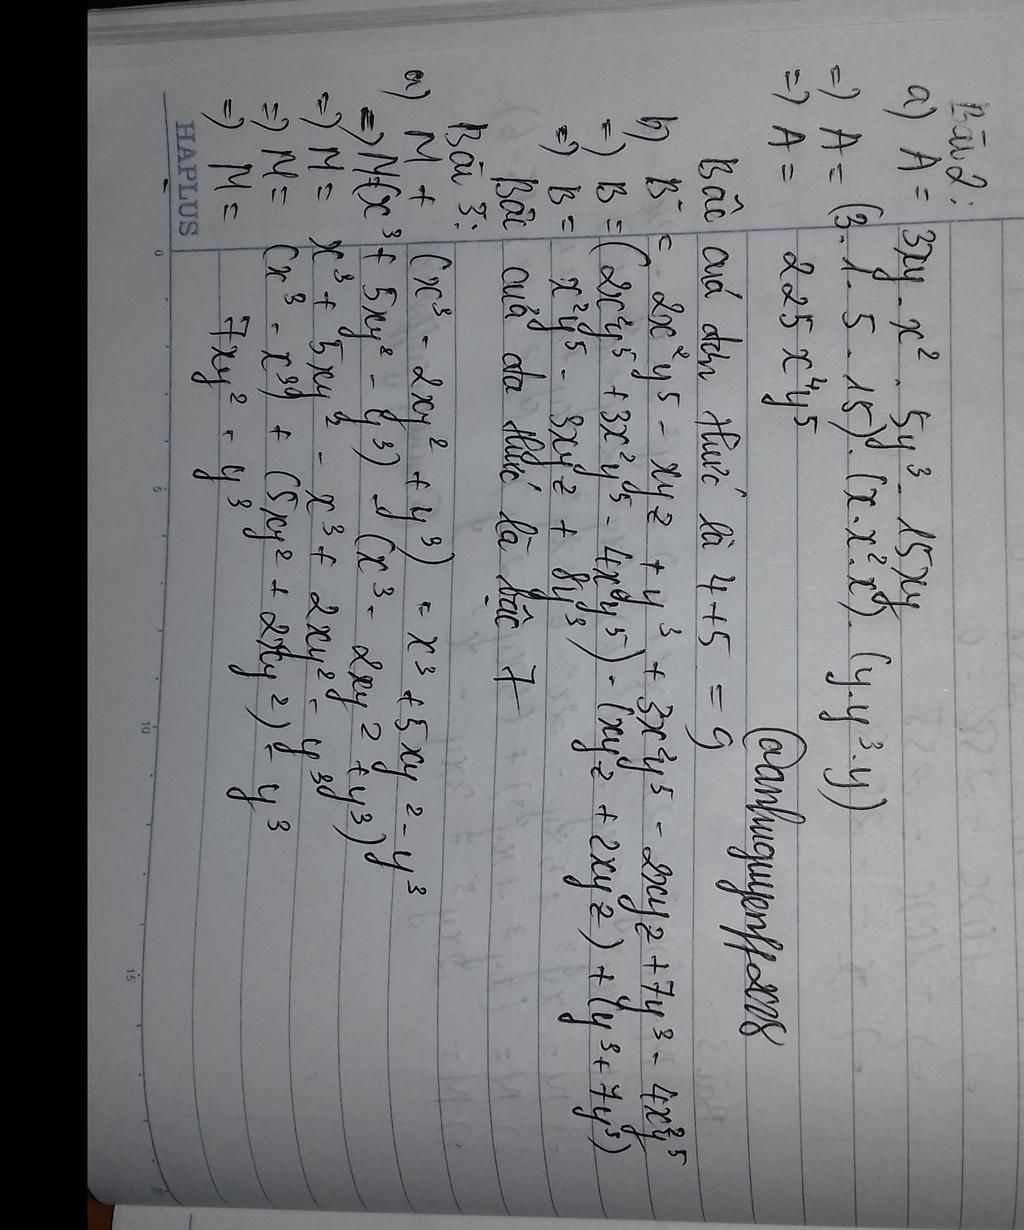 Bài 2:
a) A = 3xy . x² . 5y³ . 15xy
=) A = (3 . 1 . 5 . 15) . (x . x² . x) . (y . y³ . y)
=) A = 225 x⁴y⁵
@danhuquyenff2008
Bấc cuả đơn thức là 4+5 = 9
b) B = 2x²y⁵ - xyz + y³ + 3x²y⁵ - 2xyz + 7y³ - 4x²y⁵
=) B = (2x²y⁵ + 3x²y⁵ - 4x²y⁵) - (xyz + 2xyz) + (y³ + 7y³)
=) B = x²y⁵ - 3xyz + 8y³
Bấc cuả đa thức là bậc 7
Bài 3:
a) M + (x³ - 2xy² + y³) = x³ + 5xy² - y³
=) M = (x³ + 5xy² - y³) - (x³ - 2xy² + y³)
=) M = x³ + 5xy² - x³ + 2xy² - y³
=) M = (x³ - x³) + (5xy² + 2xy²) - y³
=) M = 7xy² - y³
HAPLUS
0 5 10 15